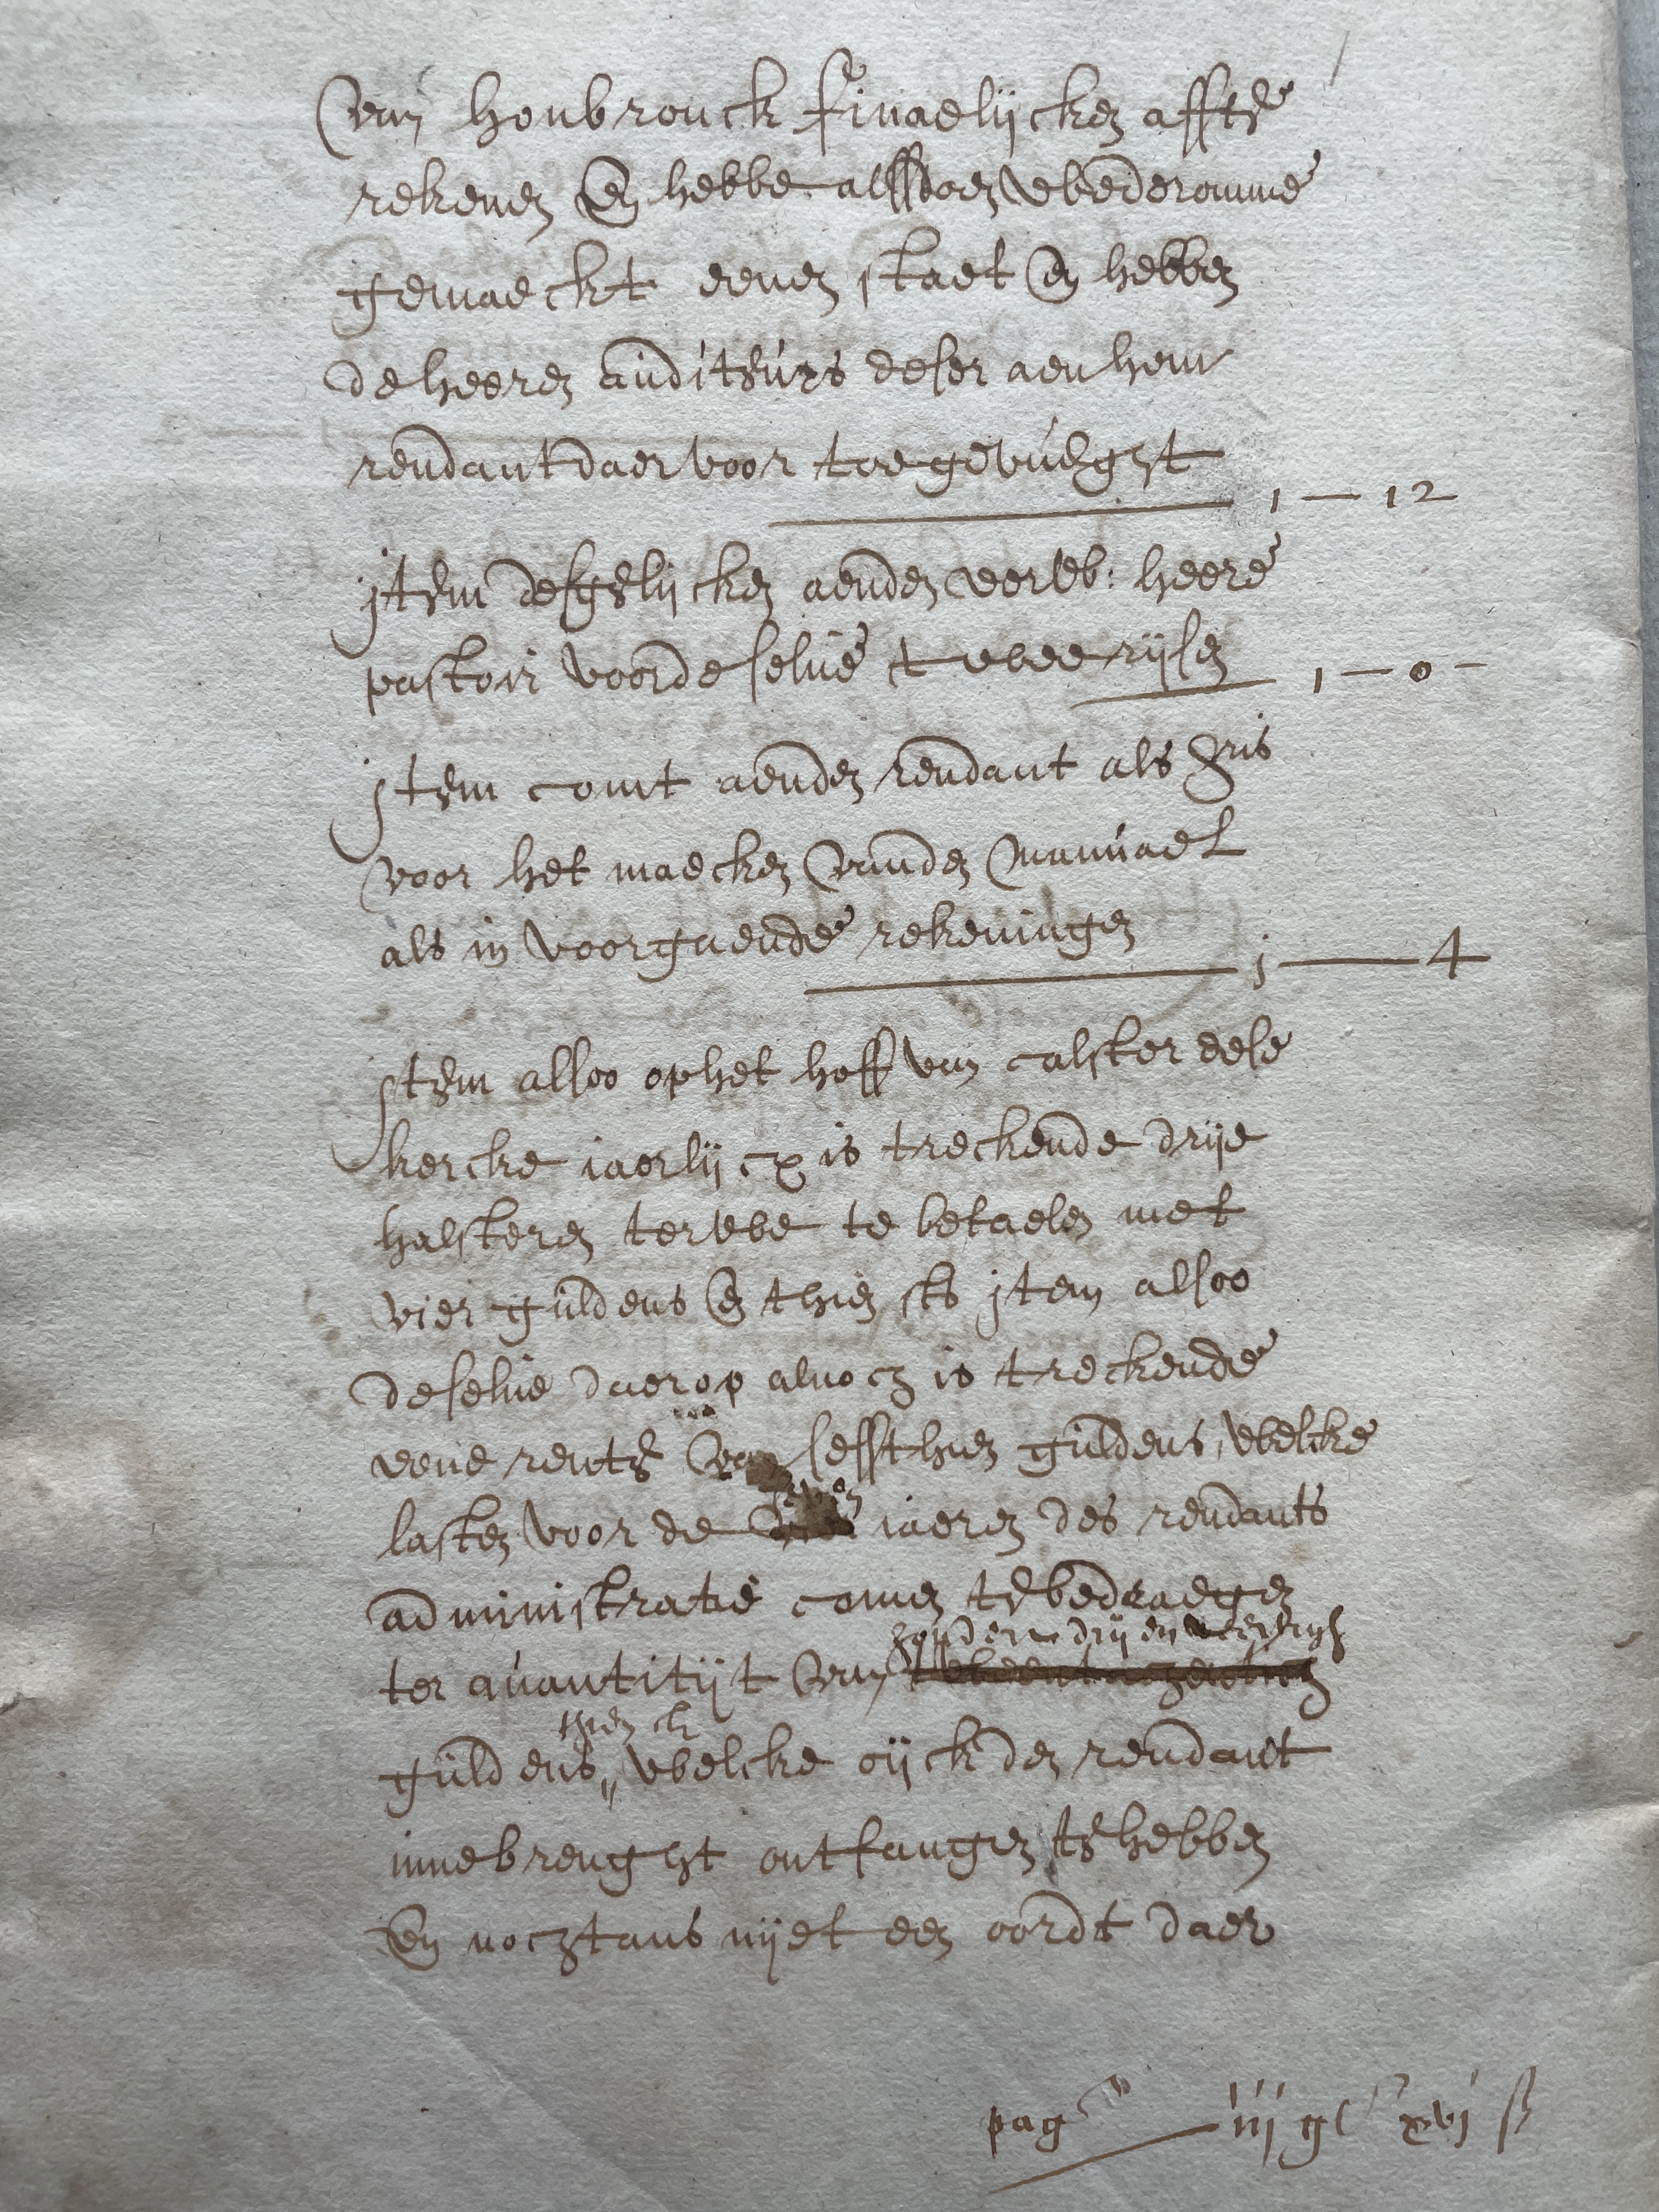 van Houbrouck finaelijcken affte
rekenen en hebbe alsdoen wederomme
gemaeckt eenen staet en hebben
de heeren auditeurs deser aen hem
rendant daer voor toegevueght
1 — 12
jtem desgelijcken aenden eerw: heere
pastoir voor de selve twee rijsen 1 — 0 —
jtem comt aenden rendant als
voor het maecken vanden manuael
als in voorgaende rekeningen
j — 4
jtem alsoo op het hoff van calster dese
kercke iaerlijcx is treckende drije
halsteren terwe te betaelen met
vier guldens en thien sts jtem alsoo
deselve daer op alnoch is treckende
eene rente van sessthien guldens, welcke
lasten voor de seven iaeren des rendants
administratie comen te bedraegen
hondert drij en veertich
ter quantitijt van
thien st
guldens,, welcke oijck den rendant
innebrenght ontfangen te hebben
en nochtans nijet een oordt daer
pag iij gl xvj ß